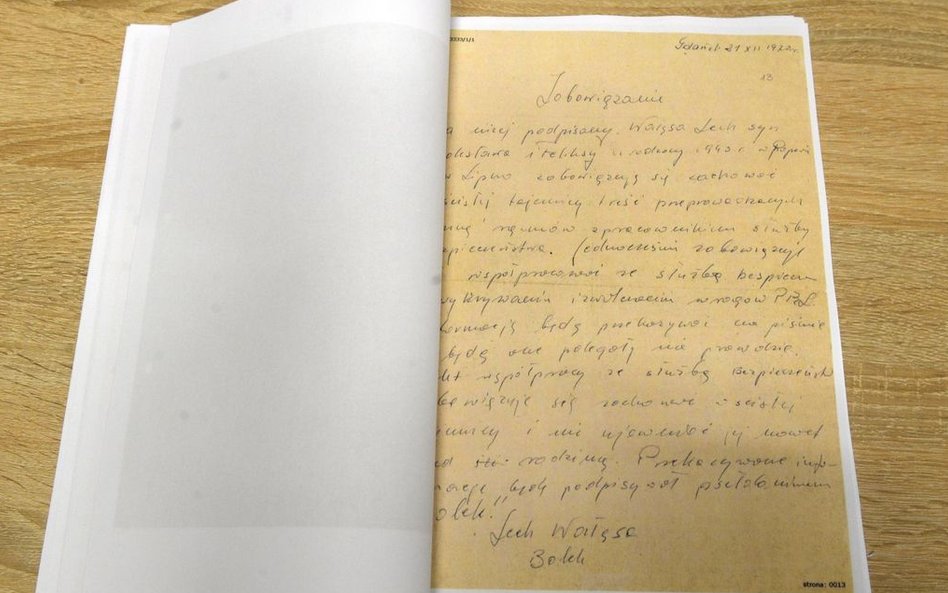 Gdańsk 21 XII 1970r.
13
Zobowiązanie
a niżej podpisany. Wałęsa Lech syn
olesława i Feliksy urodzony 1943 r. w Popowo
w Lipno zobowiązują się zachować
ścisłej tajemnicy treść przeprowadzonych
mną rozmów z pracownikiem służby
pieczeństwa. Jednocześnie zobowiązuje
współpracować ze służbą bezpiecz
wykrywaniu i zwalczaniu wrogów PRL
ormacją będą przekazywać na piśmie
będą one polegały na prawdzie.
kt współpracy ze służbą Bezpieczeńst
bowiązuje się zachować w ścisłej
jemnicy i nie ujawniać jej nawet
ed rodziną. Przekazywane info-
macje będę podpisywał pseudonimem
olek."
Lech Wałęsa
Bolek
strona: 0013